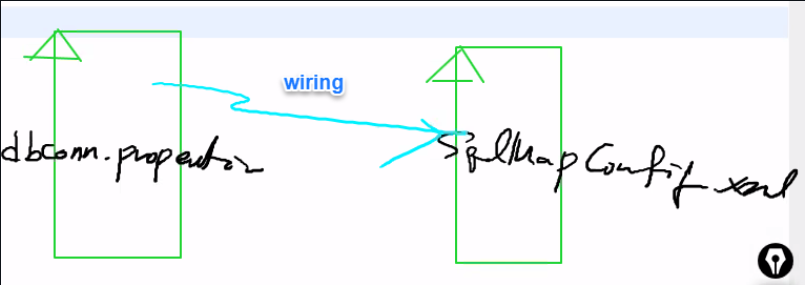 wiring
dbconn.properties
SqlMapConfig.xml